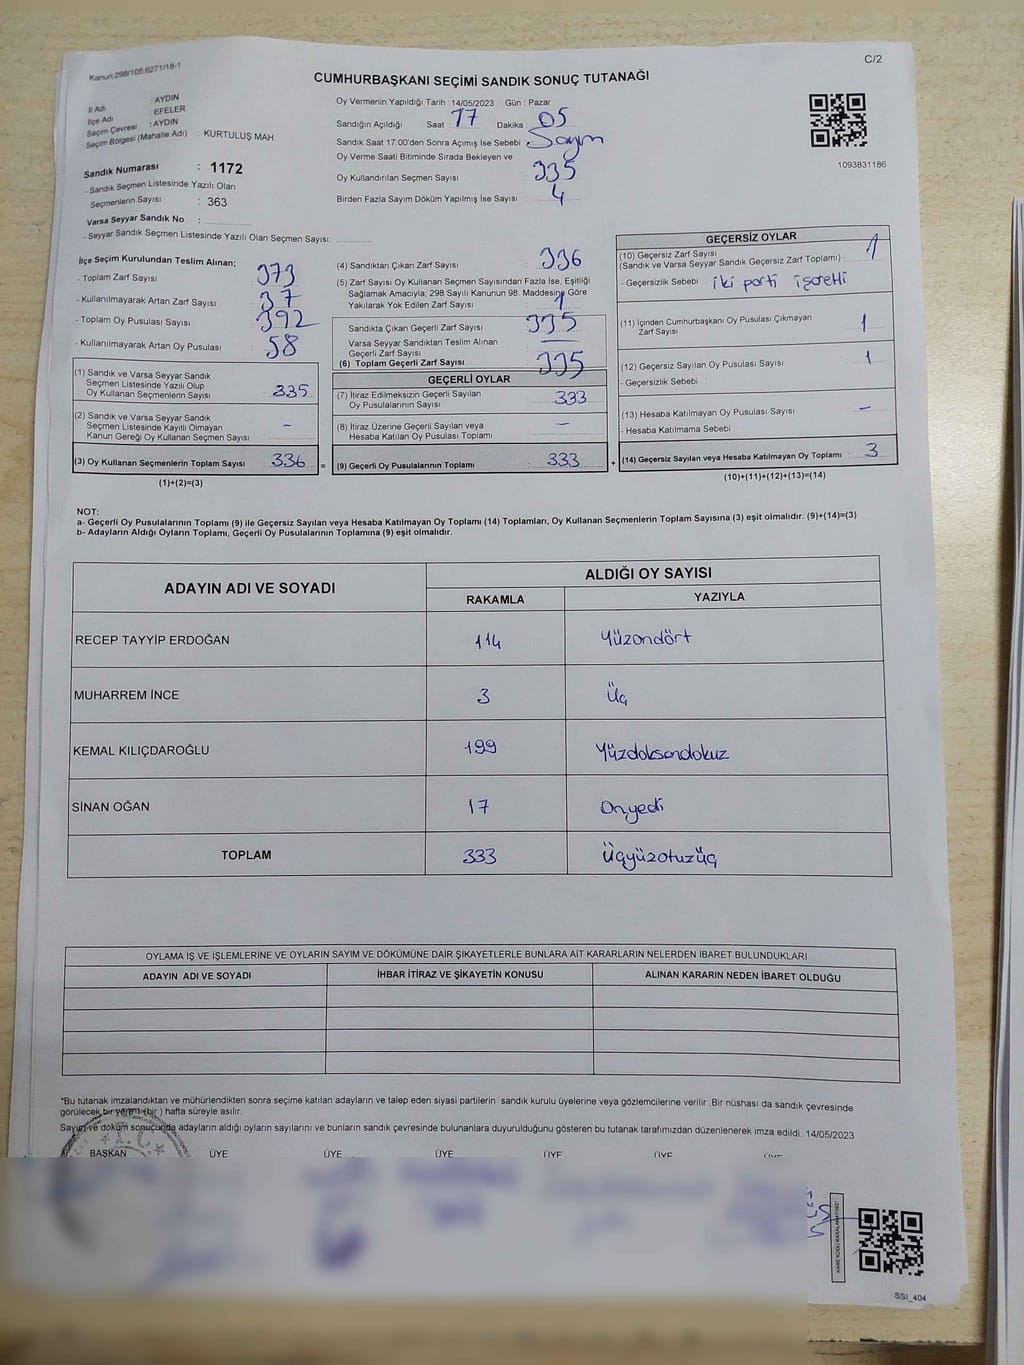 Kanun:298/105;6271/18-1
C/2
CUMHURBAŞKANI SEÇİMİ SANDIK SONUÇ TUTANAĞI
İl Adı : AYDIN
İlçe Adı : EFELER
Seçim Çevresi : AYDIN
Seçim Bölgesi (Mahalle Adı) : KURTULUŞ MAH
Sandık Numarası : 1172
- Sandık Seçmen Listesinde Yazılı Olan
Seçmenlerin Sayısı : 363
Varsa Seyyar Sandık No :
- Seyyar Sandık Seçmen Listesinde Yazılı Olan Seçmen Sayısı:
Oy Vermenin Yapıldığı Tarih : 14/05/2023 Gün : Pazar
Sandığın Açıldığı Saat : 17 Dakika : 05
Sandık Saat 17:00'den Sonra Açımış İse Sebebi : Sayım
Oy Verme Saati Bitiminde Sırada Bekleyen ve
Oy Kullandırılan Seçmen Sayısı : 335
Birden Fazla Sayım Döküm Yapılmış İse Sayısı : 4
1093831186
İlçe Seçim Kurulundan Teslim Alınan;
- Toplam Zarf Sayısı : 373
- Kullanılmayarak Artan Zarf Sayısı : 37
- Toplam Oy Pusulası Sayısı : 392
- Kullanılmayarak Artan Oy Pusulası : 58
(1) Sandık ve Varsa Seyyar Sandık
Seçmen Listesinde Yazılı Olup
Oy Kullanan Seçmenlerin Sayısı : 335
(2) Sandık ve Varsa Seyyar Sandık
Seçmen Listesinde Kayıtlı Olmayan
Kanun Gereği Oy Kullanan Seçmen Sayısı : -
(3) Oy Kullanan Seçmenlerin Toplam Sayısı : 336 =
(1)+(2)=(3)
(4) Sandıktan Çıkan Zarf Sayısı : 336
(5) Zarf Sayısı Oy Kullanan Seçmen Sayısından Fazla İse, Eşitliği
Sağlamak Amacıyla, 298 Sayılı Kanunun 98. Maddesine Göre
Yakılarak Yok Edilen Zarf Sayısı : 1
Sandıkta Çıkan Geçerli Zarf Sayısı : 335
Varsa Seyyar Sandıktan Teslim Alınan
Geçerli Zarf Sayısı : —
(6) Toplam Geçerli Zarf Sayısı : 335
GEÇERLİ OYLAR
(7) İtiraz Edilmeksizin Geçerli Sayılan
Oy Pusulalarının Sayısı : 333
(8) İtiraz Üzerine Geçerli Sayılan veya
Hesaba Katılan Oy Pusulası Toplamı : —
(9) Geçerli Oy Pusulalarının Toplamı : 333 +
GEÇERSİZ OYLAR
(10) Geçersiz Zarf Sayısı : 1
(Sandık ve Varsa Seyyar Sandık Geçersiz Zarf Toplamı)
- Geçersizlik Sebebi : iki parti işaretli
(11) İçinden Cumhurbaşkanı Oy Pusulası Çıkmayan
Zarf Sayısı : 1
(12) Geçersiz Sayılan Oy Pusulası Sayısı : 1
- Geçersizlik Sebebi :
(13) Hesaba Katılmayan Oy Pusulası Sayısı : —
- Hesaba Katılmama Sebebi :
(14) Geçersiz Sayılan veya Hesaba Katılmayan Oy Toplamı : 3
(10)+(11)+(12)+(13)=(14)
NOT:
a- Geçerli Oy Pusulalarının Toplamı (9) ile Geçersiz Sayılan veya Hesaba Katılmayan Oy Toplamı (14) Toplamları, Oy Kullanan Seçmenlerin Toplam Sayısına (3) eşit olmalıdır. (9)+(14)=(3)
b- Adayların Aldığı Oyların Toplamı, Geçerli Oy Pusulalarının Toplamına (9) eşit olmalıdır.
ADAYIN ADI VE SOYADI ALDIĞI OY SAYISI
RAKAMLA YAZIYLA
RECEP TAYYİP ERDOĞAN 114 Yüzondört
MUHARREM İNCE 3 Üç
KEMAL KILIÇDAROĞLU 199 Yüzdoksandokuz
SİNAN OĞAN 17 Onyedi
TOPLAM 333 Üçyüzotuzüç
OYLAMA İŞ VE İŞLEMLERİNE VE OYLARIN SAYIM VE DÖKÜMÜNE DAİR ŞİKAYETLERLE BUNLARA AİT KARARLARIN NELERDEN İBARET BULUNDUKLARI
ADAYIN ADI VE SOYADI İHBAR İTİRAZ VE ŞİKAYETİN KONUSU ALINAN KARARIN NEDEN İBARET OLDUĞU
*Bu tutanak imzalandıktan ve mühürlendikten sonra seçime katılan adayların ve talep eden siyasi partilerin sandık kurulu üyelerine veya gözlemcilerine verilir. Bir nüshası da sandık çevresinde
görülecek bir yere 1 (bir) hafta süreyle asılır.
Sayım ve döküm sonucunda adayların aldığı oyların sayılarını ve bunların sandık çevresinde bulunanlara duyurulduğunu gösteren bu tutanak tarafımızdan düzenlenerek imza edildi. 14/05/2023
T.C.
BAŞKAN ÜYE ÜYE ÜYE ÜYE ÜYE ÜYE
KARE KODU KARALAMAYINIZ!
SSI_404